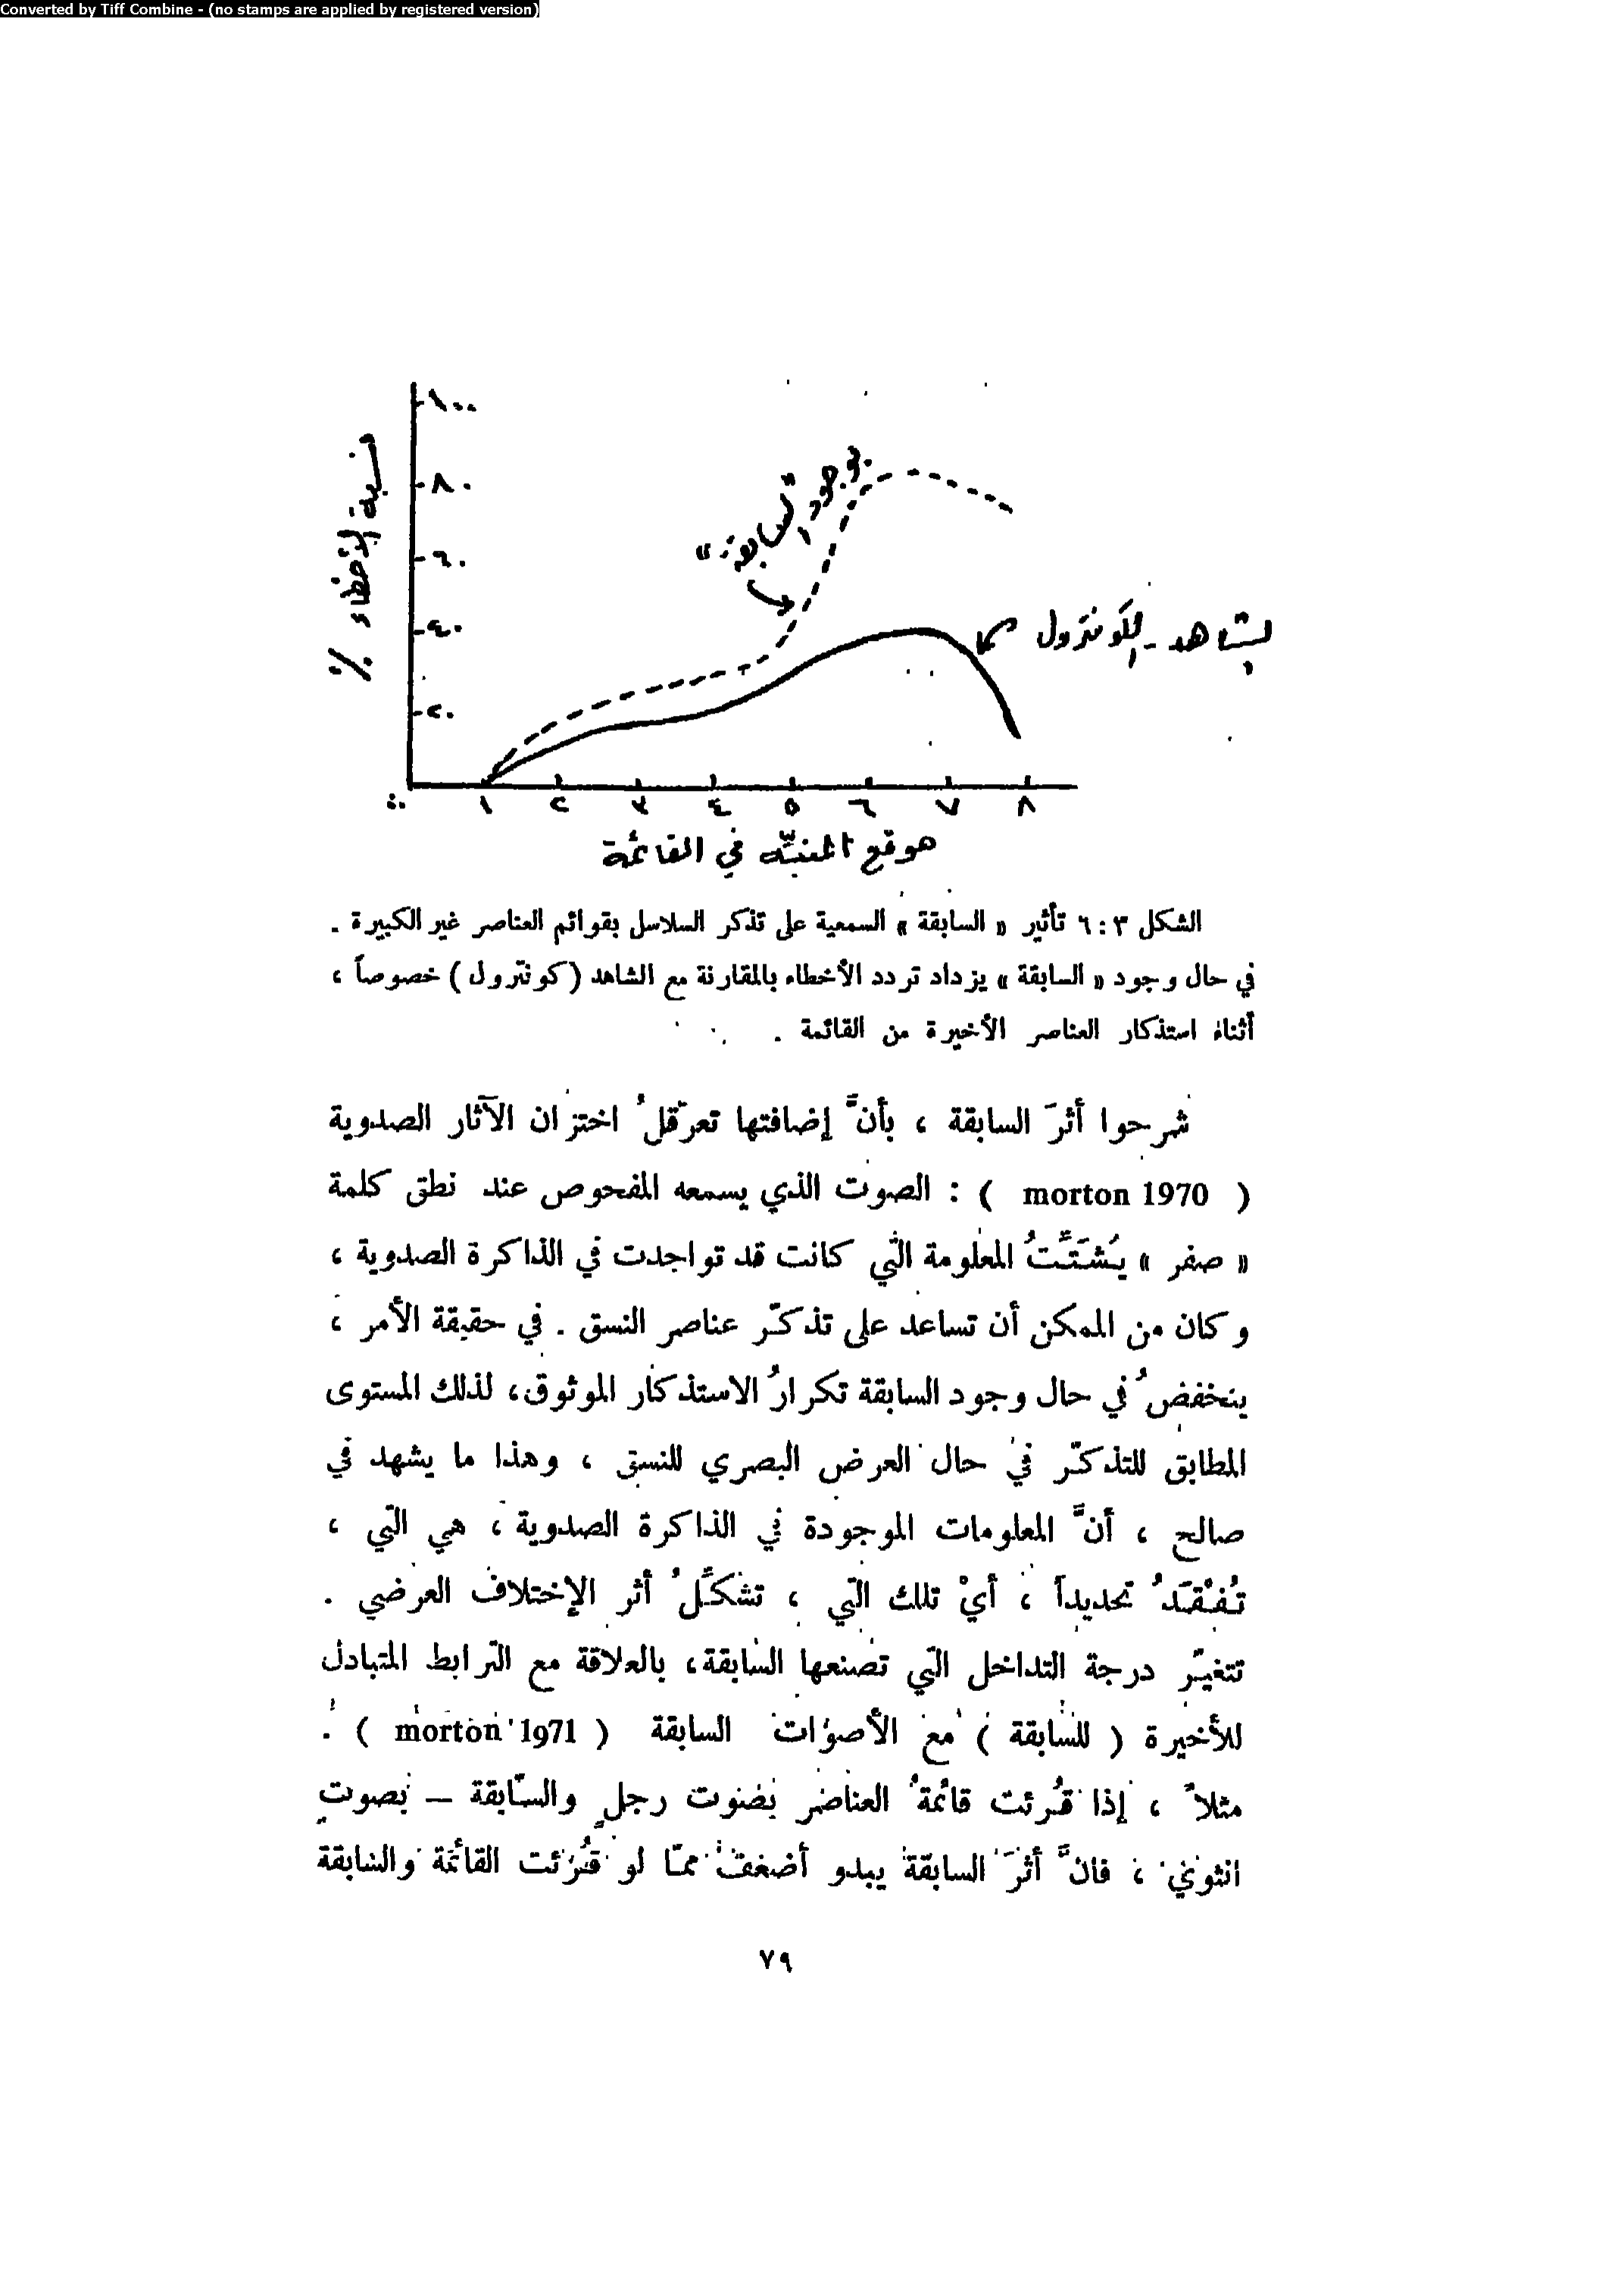 Converted by Tiff Combine - (no stamps are applied by registered version)
١٠٠
٨٠
٦٠
٤٠
٢٠
نسبة الأخطاء ٪
بوجود "السابقة"
الشاهد - الكونترول
١ ٢ ٣ ٤ ٥ ٦ ٧ ٨
موقع المنبّه في القائمة
الشكل ٣ : ٦ تأثير « السابقة » السمعية على تذكر السلاسل بقوائم العناصر غير الكبيرة .
في حال وجود « السابقة » يزداد تردد الأخطاء بالمقارنة مع الشاهد ( كونترول ) خصوصاً ،
أثناء استذكار العناصر الأخيرة من القائمة .
شرحوا أثرَ السابقة ، بأنَّ إضافتها تعرّقلُ اختزان الآثار الصدوية
( morton 1970 ) : الصوت الذي يسمعه المفحوص عند نطق كلمة
« صفر » يُشتِّتُ المعلومة التي كانت قد تواجدت في الذاكرة الصدوية ،
وكان من الممكن أن تساعد على تذكّر عناصر النسق . في حقيقة الأمر ،
ينخفضُ في حال وجود السابقة تكرارُ الاستذكار الموثوق، لذلك المستوى
المطابق للتذكّر في حال العرض البصري للنسق ، وهذا ما يشهد في
صالح ، أنَّ المعلومات الموجودة في الذاكرة الصدوية ، هي التي ،
تُفْقَدُ تحديداً ، أيْ تلك التي ، تشكِّلُ أثر الإختلاف العرضي .
تتغيّر درجة التداخل التي تصنعها السابقة، بالعلاقة مع الترابط المتبادل
للأخيرة ( للسابقة ) مع الأصوات السابقة ( morton 1971 ) .
مثلاً ، إذا قُرئت قائمةُ العناصر بصوت رجلٍ والسّابقة – بصوتٍ
انثوي ، فانَّ أثرَ السابقة يبدو أضعف ممّا لو قُرئت القائمة والسابقة
٧٩